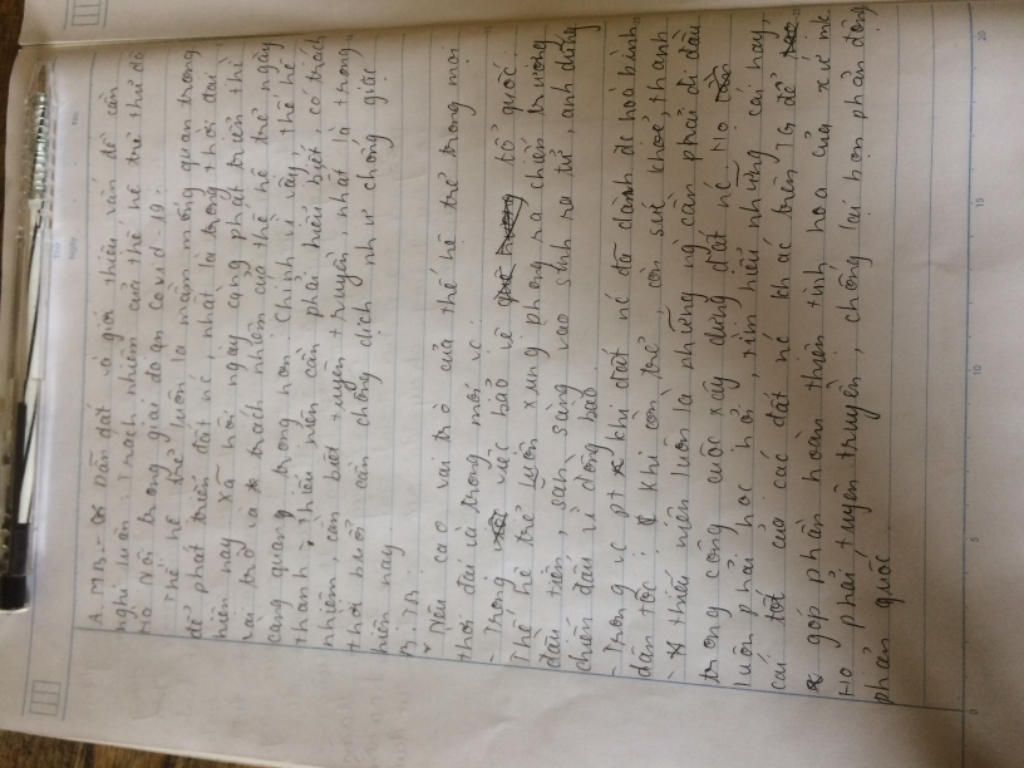 A. MB: - Dẫn dắt và giới thiệu vấn đề cần
nghị luận: Trách nhiệm của thế hệ trẻ thủ đô
Hà Nội trong giai đoạn covid-19.
- Thế hệ trẻ luôn là mầm mống quan trọng
để phát triển đất nc, nhất là trong thời đại
hiện nay xã hội ngày càng phát triển thì
vai trò và trách nhiệm của thế hệ trẻ ngày
càng quang trọng hơn. Chính vì vậy, thế hệ
thanh thiếu niên cần phải hiểu biết, có trách
nhiệm, cần biết tuyên truyền, nhất là trong
thời buổi cần chống dịch như chống giặc
hiện nay
B. TB
Nêu cao vai trò của thế hệ trẻ trong mọi
thời đại và trong mọi vc
- Trong việc bảo vệ tổ quốc
Thế hệ trẻ luôn xung phong ra chiến trường
đầu tiên, sẵn sàng vào sinh ra tử, anh dũng
chiến đấu vì đồng bào.
- Trong vc pt khi đất nc đã dành đc hoà bình
dân tộc: khi còn trẻ, còn sức khoẻ, thanh
thiếu niên luôn là những ng cần phải đi đầu
trong công cuộc xây dựng đất nc. Họ
luôn phải học hỏi, tìm hiểu những cái hay,
cái tốt của các đất nc khác trên TG để
góp phần hoàn thiện tinh hoa của xứ mk
Họ phải tuyên truyền, chống lại bọn phản động
phản quốc